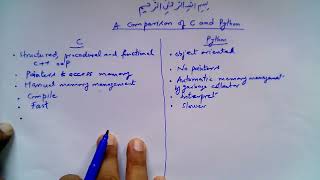 بسم الله الرحمن الرحيم
A Comparison of C and Python
C
Structured, procedural and functional
C++ oop
Pointers to access memory
Manual memory management
Compile
Fast
Python
object oriented
No pointers
Automatic memory management
by garbage collector
interpret
slower